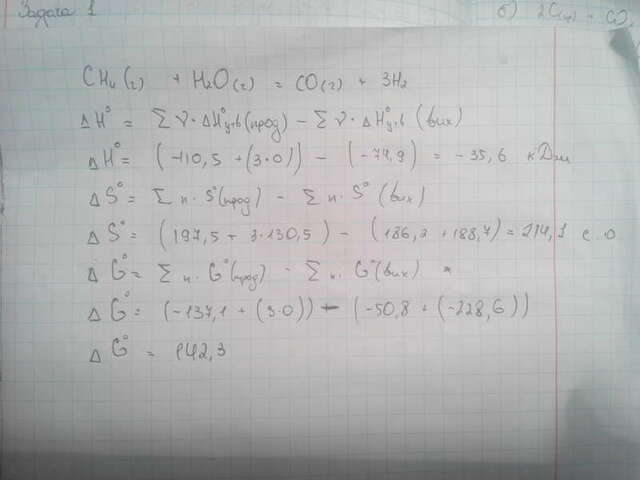 Задача 1
б) 2C(гр) + O₂
CH₄(г) + H₂O(г) = CO(г) + 3H₂
ΔH° = Σ ν·ΔH°утв(прод) - Σ ν·ΔH°утв (вих)
ΔH° = (-110,5 + (3·0)) - (-74,9) = -35,6 кДж
ΔS° = Σ n·S°(прод) - Σ n·S° (вих)
ΔS° = (197,5 + 3·130,5) - (186,2 + 188,7) = 214,1 е.о
ΔG° = Σ n·G°(прод) - Σ n·G°(вих)
ΔG° = (-137,1 + (3·0)) - (-50,8 + (-228,6))
ΔG° = 142,3